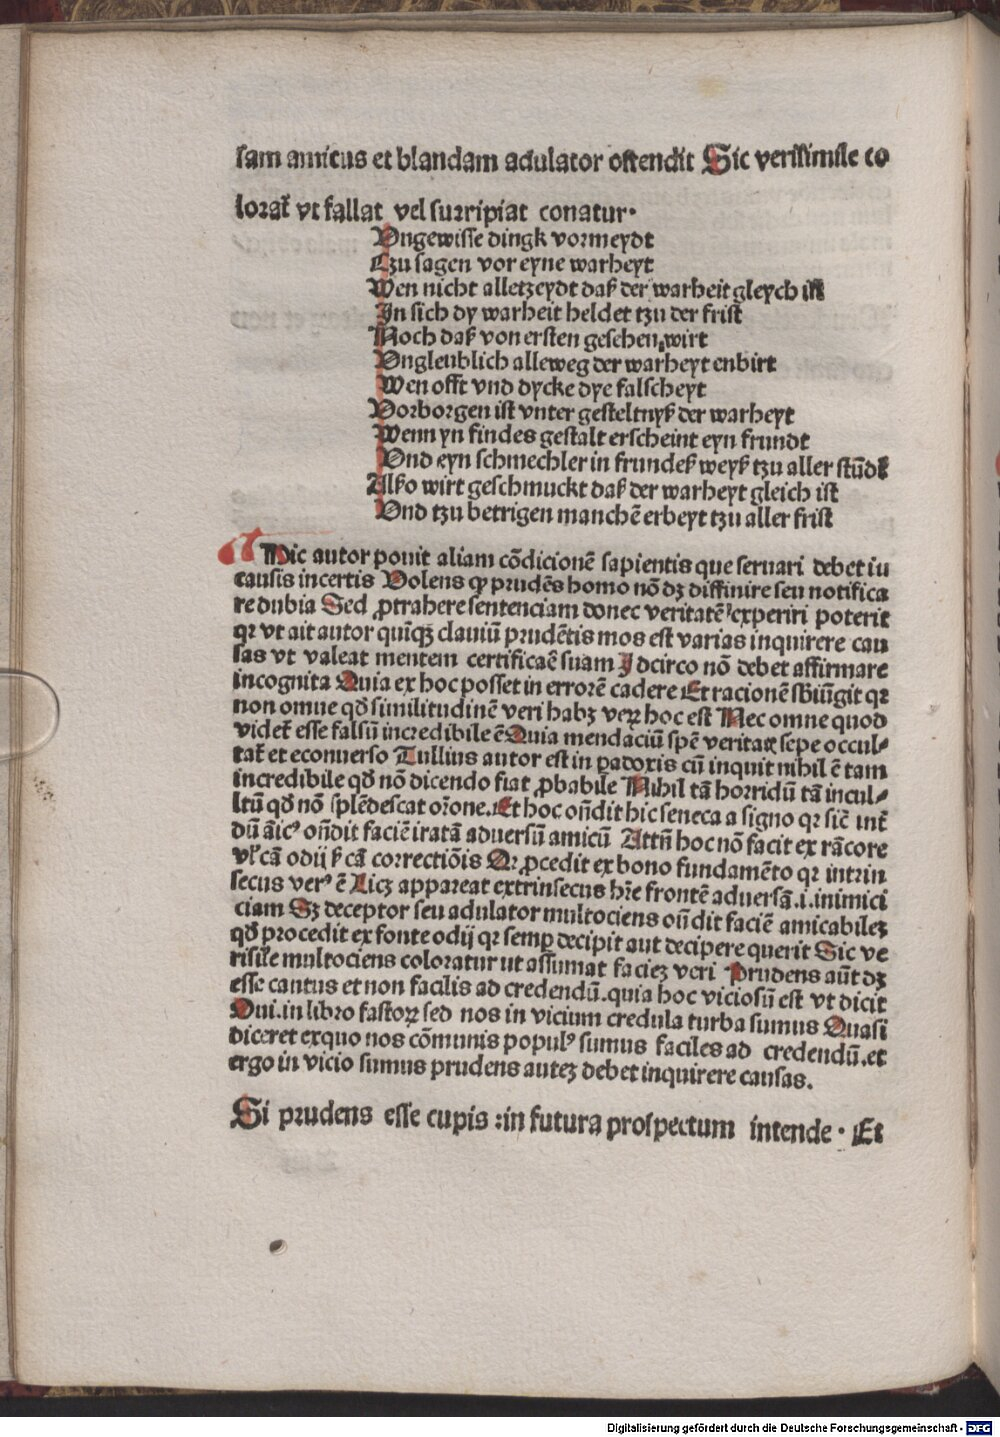 sam amicus et blandam adulator ostendit Sic verissimile co
lorat᷑ vt fallat vel surripiat conatur·
Vngewisse dingk vormeydt
Tzu sagen vor eyne warheyt
Wen nicht alletzeydt daß der warheit gleych ist
In sich dy warheit heldet tzu der frist
Noch daß von ersten gesehen wirt
Vngleublich alleweg der warheyt enbirt
Wen offt vnd dycke dye falscheyt
Vorborgen ist vnter gesteltnyß der warheyt
Wenn yn findes gestalt erscheint eyn frundt
Vnd eyn schmechler in frundeß weyß tzu aller stūdt
Alßo wirt geschmuckt daß der warheyt gleich ist
Vnd tzu betrigen manchē erbeyt tzu aller frist
Hic autor ponit aliam cōdicionē sapientis que seruari debet in
causis incertis Volens ꝙ prudēs homo nō dꝫ diffinire seu notifica
re dubia Sed ꝓtrahere sentenciam donec veritatē experiri poterit
qꝛ vt ait autor quīqꝫ clauiū prudētis mos est varias inquirere cau
sas vt valeat mentem certificaē suam Idcirco nō debet affirmare
incognita Quia ex hoc posset in errorē cadere Et racionē sbiūgit qꝛ
non omne qđ similitudinē veri habꝫ veꝝ hoc est Nec omne quod
videt᷑ esse falsū incredibile ē Quia mendaciū spē veritatꝭ sepe occul⸗
tat᷑ et econuerso Tullius autor est in ꝑadoxis cū inquit nihil ē tam
incredibile qđ nō dicendo fiat ꝓbabile Nihil tā horridū tā incul⸗
ltū qđ nō splēdescat or̄one. Et hoc oñdit hic seneca a signo qꝛ sic̄ int᷑
dū āicꝰ oñdit faciē iratā aduersū amicū Attñ hoc nō facit ex rācore
vꝉ cā odij ꝭ cā correctiōis Qꝛ ꝓcedit ex bono fundamēto qꝛ intrin
secus verꝰ ē Licꝫ appareat extrinsecus hr̄e frontē aduersā .i. inimici
ciam Sꝫ deceptor seu adulator multociens oñdit faciē amicabileꝫ
qđ procedit ex fonte odij qꝛ semꝑ decipit aut decipere querit Sic ve
risiĺe multociens coloratur ut assumat facieꝫ veri Prudens aūt dꝫ
esse cautus et non facilis ad credendū. quia hoc viciosū est vt dicit
Oui. in libro fastoꝝ sed nos in vicium credula turba sumus Quasi
diceret exquo nos cōmunis populꝰ sumus faciles ad credendū. et
ergo in vicio sumus prudens auteꝫ debet inquirere causas.
Si prudens esse cupis : in futura prospectum intende · Et
Digitalisierung gefördert durch die Deutsche Forschungsgemeinschaft - DFG